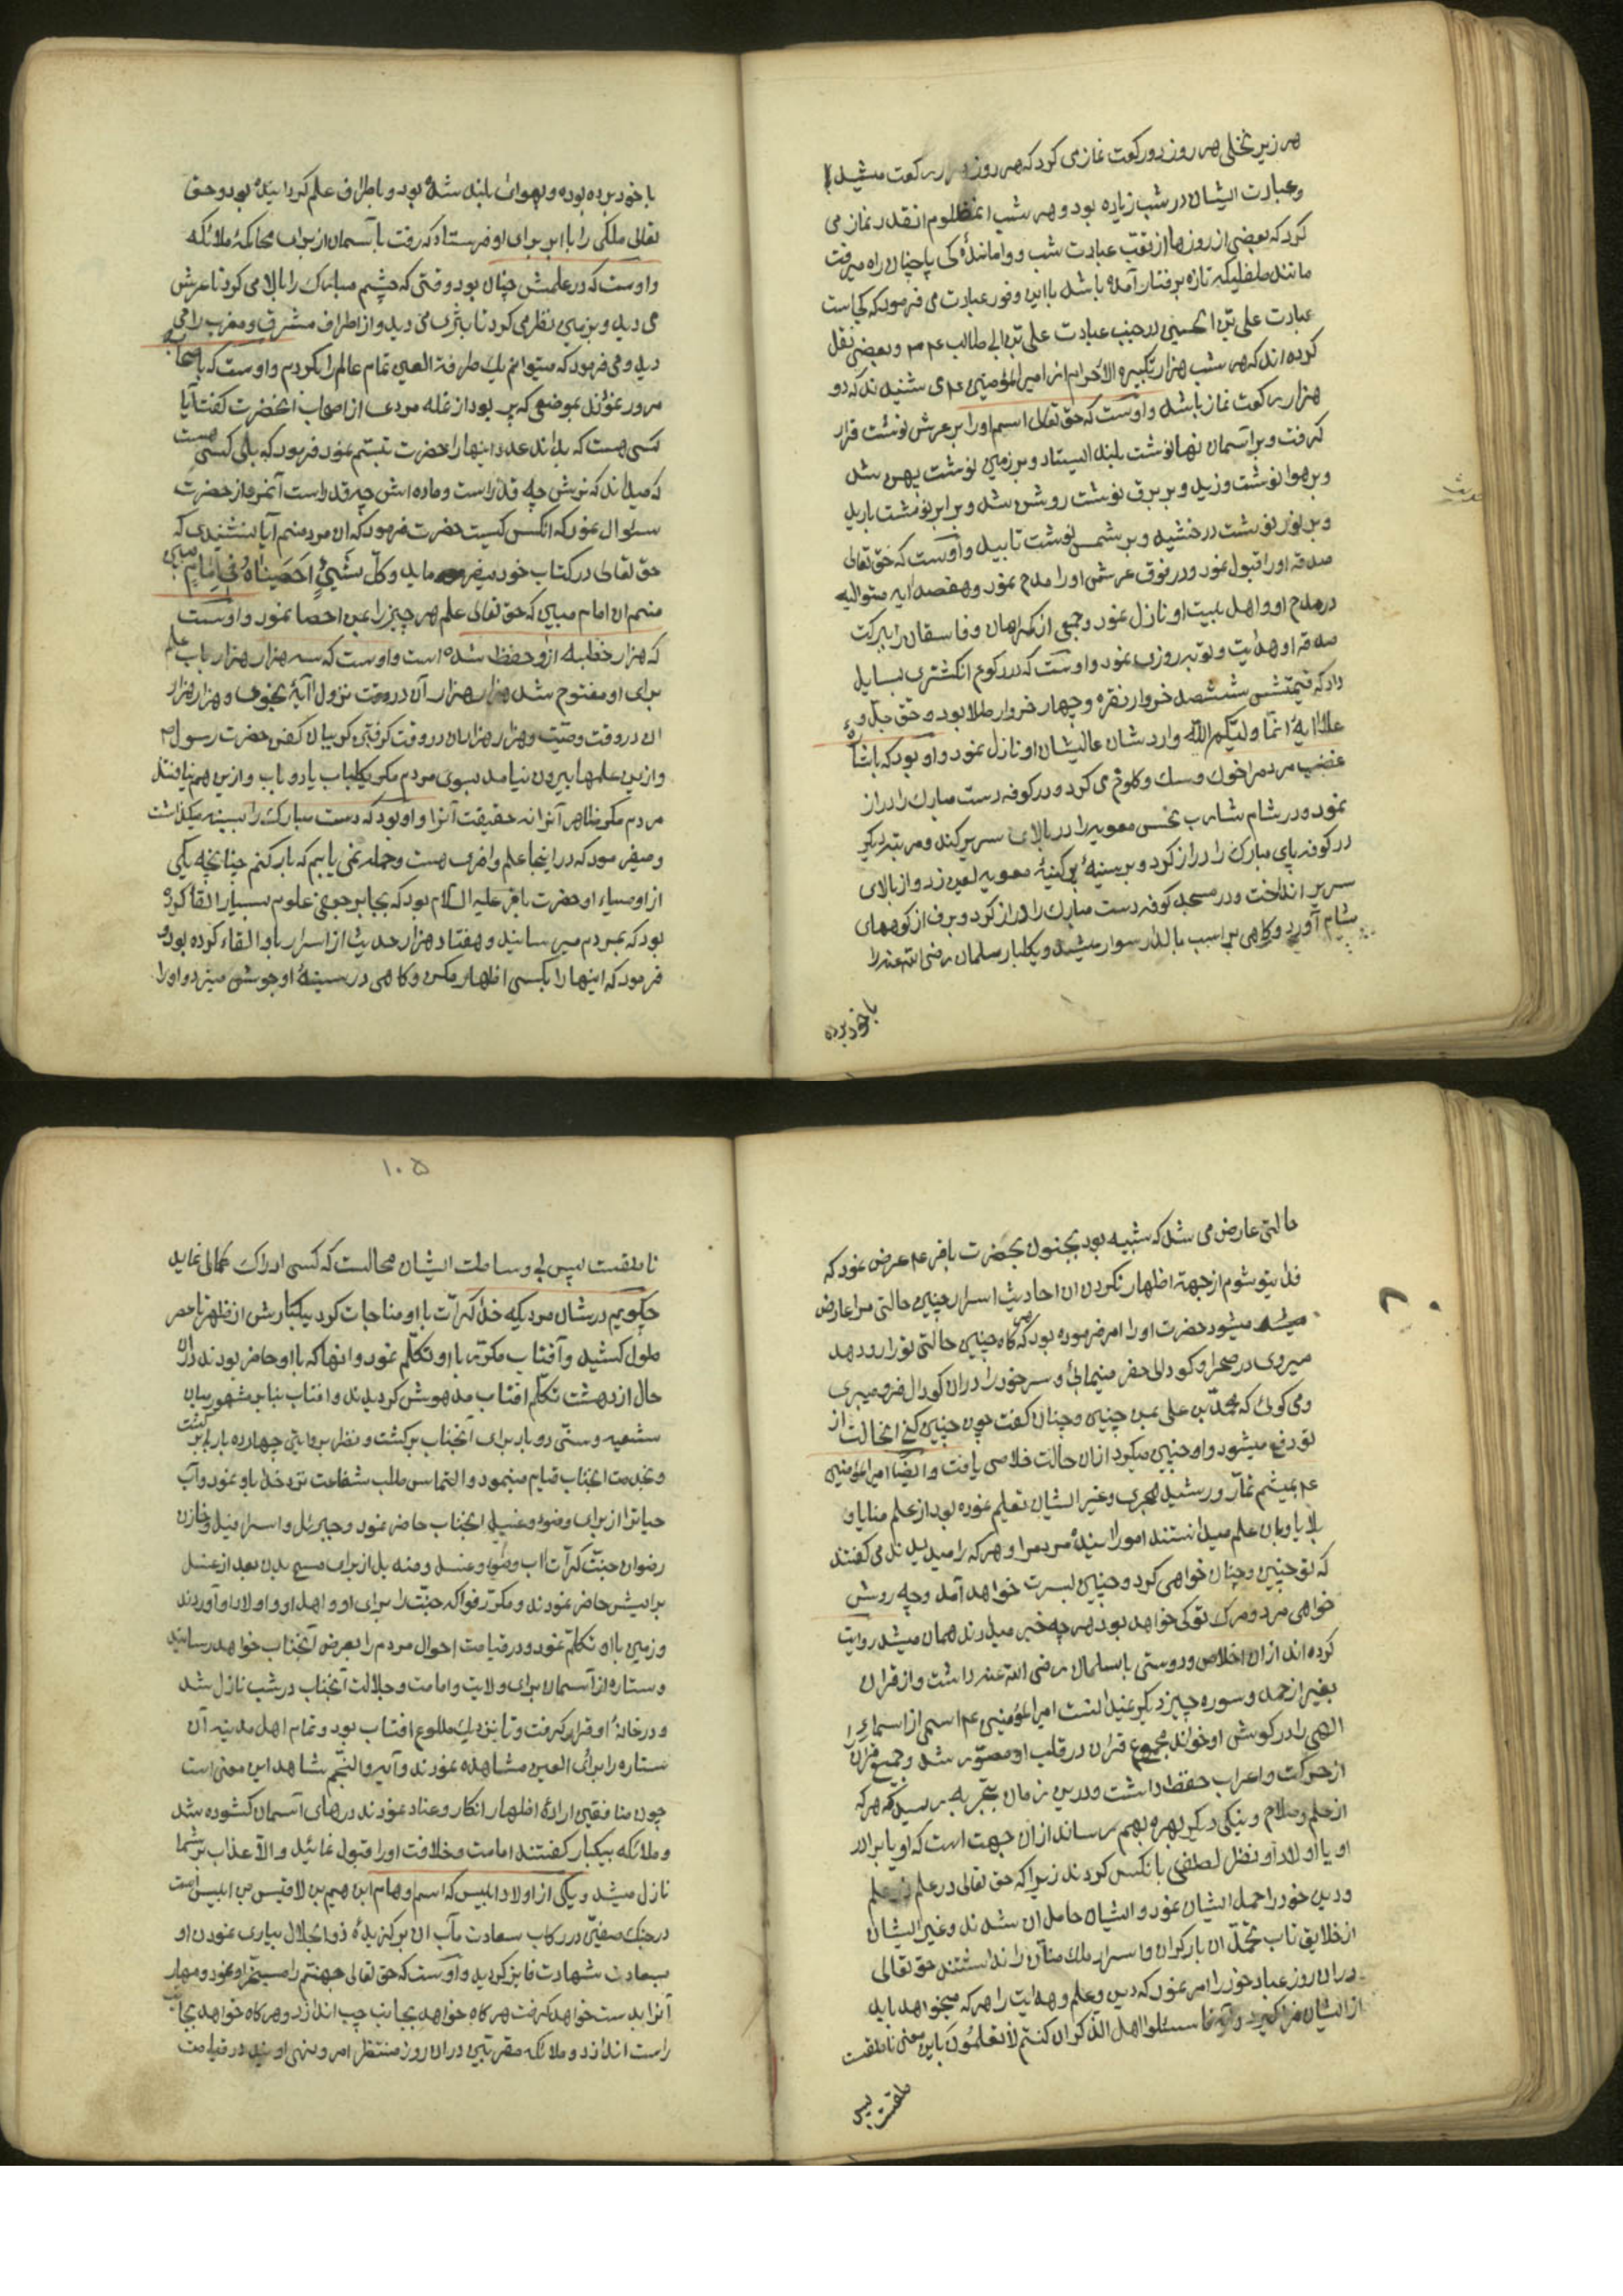 هر زیر نخلی هر روز دو رکعت نماز می کرد که هر روز رکعت میشد
و عبادت ایشان در شب زیاده بود و هر شب انمظلوم انقدر نماز می
کرد که بعضی از روزها از تعب عبادت شب و واماندهٔ کی پا چنان راه میرفت
مانند طفلیکه تازه برفتار آمده باشد با این وفور عبادت می فرمود که کجاست
عبادت علی بن الحسین در جنب عبادت علی بن ابی طالب عم و بعضی نقل
کرده اند که هر شب هزار تکبیره الاحرام از امیر المؤمنین عم می شنیدند که دو
هزار رکعت نماز باشد و اوست که حق تعالی اسم او را بر عرش نوشت قرار
کرفت و بر آسمان نها نوشت بلند ایستاد و بر زمین نوشت پهن شد
و بر هوا نوشت وزید و بر برق نوشت روشن شد و بر ابر نوشت بارید
و بر نور نوشت درخشید و بر شمس نوشت تابید و اوست که حق تعالی
صدقه او را قبول نمود و در فوق عرش او را مدح نمود و هفصد ایه متوالیه
در مدح او و اهل بیت او نازل نمود و جمعی از کمراهان و فاسقان را ببرکت
صدقه او هدایت و توبه روزی نمود و اوست که در رکوع انکشتری بسایل
داد که قیمتش ششصد خروار نقره و چهار خروار طلا بود و حق جل و
علا ایهٔ انما ولیکم الله وارد شان عالیشان او نازل نمود و او بود که باشارهٔ
غضب مردم را خوک و سک و کلوخ می کرد و در کوفه دست مبارک را دراز
نمود و در شام شارب نحس معویه را در بالای سریر کند و مرتبه دیکر
در کوفه پای مبارک را دراز کرد و بر سینهٔ پر کینهٔ معویه لعین زد و از بالای
سریر انداخت و در مسجد کوفه دست مبارک را دراز کرد و برف از کوههای
شام آورد و کاهی بر اسب بالدار سوار میشد و یکبار سلمان رضی الله عنه را
با خود برده
با خود برده بوده و بهوای بلند شده بود و باطراف علم کردانیده بود و حق
تعالی ملکی را با ابر برای او فرستاد که رفت با آسمان از برای محاکمهٔ ملائکه
و اوست که در علمش چنان بود وقتی که چشم مبارک را بالا می کرد تا عرش
می دید و بزمین نظر می کرد تا بثری می دید و از اطراف مشرق و مغرب را می
دید و می فرمود که میتوانم بیک طرفة العین تمام عالم را بکردم و اوست که با صحابه
مرور نمودند بموضعی که پر بود از نمله مردی از اصحاب انحضرت کفت آیا
کسی هست که بداند عدد اینها را حضرت تبسم نمود فرمود که بلی کسی هست
که میداند که نرش چه قدر است و ماده اش چه قدر است آنمرد از حضرت
سئوال نمود که انکس کیست حضرت فرمود که ان مرد منم آیا نشنیدی که
حق تعالی در کتاب خود میفرماید و کل شیئ احصیناه فی امام مبین
منم ان امام مبین که حق تعالی علم هر چیز را بمن احصا نمود و اوست
که هزار خطبه از او حفظ شده است و اوست که سه هزار هزار باب علم
برای او مفتوح شد هزار هزار آن در وقت نزول آیهٔ نجوی و هزار هزار
ان در وقت وصیت و هزار هزار ان در وقت کرفتن کریبان کفن حضرت رسول ص
و از ین علمها بیرون نیامد بسوی مردم مکر یکباب یا دو باب و ازین هم نیافتند
مردم مکر ظاهر آنرا نه حقیقت آنرا و او بود که دست مبارک را بسینه میکذاشت
و میفرمود که در اینجا علم وافری هست و حمله نمی یابم که بار کنم چنانچه یکی
از اوصیاء او حضرت باقر علیه السلام بود که بجابر جوعفی علوم بسیار القا کرده
بود که بمردم میرسانید و هفتاد هزار حدیث از اسرار باو القاء کرده بود و
فرمود که اینها را بکسی اظهار مکن و کاهی در سینهٔ او جوش میزد و او را
حالتی عارض می شد که شبیه بود بجنون بحضرت باقر عم عرض نمود که
فدایتو شوم از جهة اظهار نکردن ان احادیث اسرار چنین حالتی مرا عارض
میشود حضرت او را امر فرموده بود که هر کاه چنین حالتی تو را رو دهد
میروی در صحرا و کودالی حفر مینمایی و سر خود را در ان کودال فرو میبری
و می کوئی که محمد بن علی بمن چنین و چنان کفت چون چنین کنی انحالت از
تو دفع میشود و او چنین میکرد از ان حالت خلاصی یافت و ایضا امیر المؤمنین
عم بمیثم تمار و رشید هجری و غیر ایشان تعلیم نموده بود از علم منایا و
بلایا و بان علم میدانستند امور ایندهٔ مردم را و هر که را میدیدند می کفتند
که تو چنین و چنان خواهی کرد و چنین بسرت خواهد آمد و چه روش
خواهی مرد و مرک تو کی خواهد بود هر چه خبر میدادند همان میشد روایت
کرده اند از ان اخلاص و دوستی با سلمان رضی الله عنه داشت و از قران
بغیر از حمد و سوره چیز دیکر نمیدانست امیر المؤمنین عم اسمی از اسماء
الهی را در کوش او خواند مجموع قران در قلب او مصور شد و جمیع قران را
از حرکت و اعراب حفظ داشت و درین زمان بتجربه رسید که هر که
از علم و صلاح و نیکی دیگر بهره بهم رساند از ان جهت است که او یا برادر
او یا اولاد او نظر لطفی بانکس کردند زیرا که حق تعالی در علم علم
و دین خود را حمل ایشان نمود و ایشان حامل ان شدند و غیر ایشان
از خلایق تاب تحمل ان بار کران و اسرار ملک منان را نداشتند حق تعالی
در ان روز عباد خود را امر نمود که دین و علم و هدایت را هر که میخواهد باید
از ایشان فرا کیرد و آیه فاسئلوا اهل الذکر ان کنتم لا تعلمون باین معنی ناطقست
طقست پس
۱۰۵
ناطقست پس بی وساطت ایشان محالست که کسی ادراک کمالی نماید
چکویم در شان مردیکه خدا کرات با او مناجات کرد یکبارش از ظهر تا عصر
طول کشید و آفتاب مکرر با او تکلم نمود و انها که با او حاضر بودند در ان
حال از دهشت تکلم افتاب مدهوش کردیدند و افتاب بنابر مشهور میان
شیعه و سنی دو بار برای آنجناب برکشت و نظر بروایتی چهارده بار برکشت
و بخدمت انجناب قیام مینمود و التماس طلب شفاعت نزد خدا باو نمود و آب
حیاترا از برای وضوء و غسل انجناب حاضر نمود و جبرئیل و اسرافیل و خازن
رضوان جنت کرات اب وضوء و غسل و مندیل از برای مسح بدن بعد از غسل
برایش حاضر نمودند و مکرر فواکه جنت را برای او و اهل او و اولاد او آوردند
و زمین با او تکلم نمود و در قیامت احوال مردم را بعرض آنجناب خواهد رسانید
و ستاره از آسمان برای ولایت و امامت و جلالت آنجناب در شب نازل شد
و در خانهٔ او قرار کرفت و تا نزدیک طلوع افتاب بود و تمام اهل مدینه آن
ستاره را برای العین مشاهده نمودند و آیه والنجم شاهد این معنی است
چون منافقین ارادهٔ اظهار انکار و عناد نمودند درهای آسمان کشوده شد
و ملائکه بیکبار کفتند امامت و خلافت او را قبول نمائید و الا عذاب بر شما
نازل میشد و یکی از اولاد ابلیس که اسم او هام ابن هیم بن لاقیس بن ابلیس است
در جنک صفین در رکاب سعادت مآب ان برکزیدهٔ ذو الجلال بیاری نمودن او
بسعادت شهادت فایز کردید و اوست که حق تعالی جهنم را مسخر او نمود و مهار
آنرا بدست خواهد کرفت هر کاه خواهد بجانب چپ اندازد و هر کاه خواهد بجانب
راست اندازد و ملائکه مقربین در ان روز منتظر امر و نهی اویند در قیامت